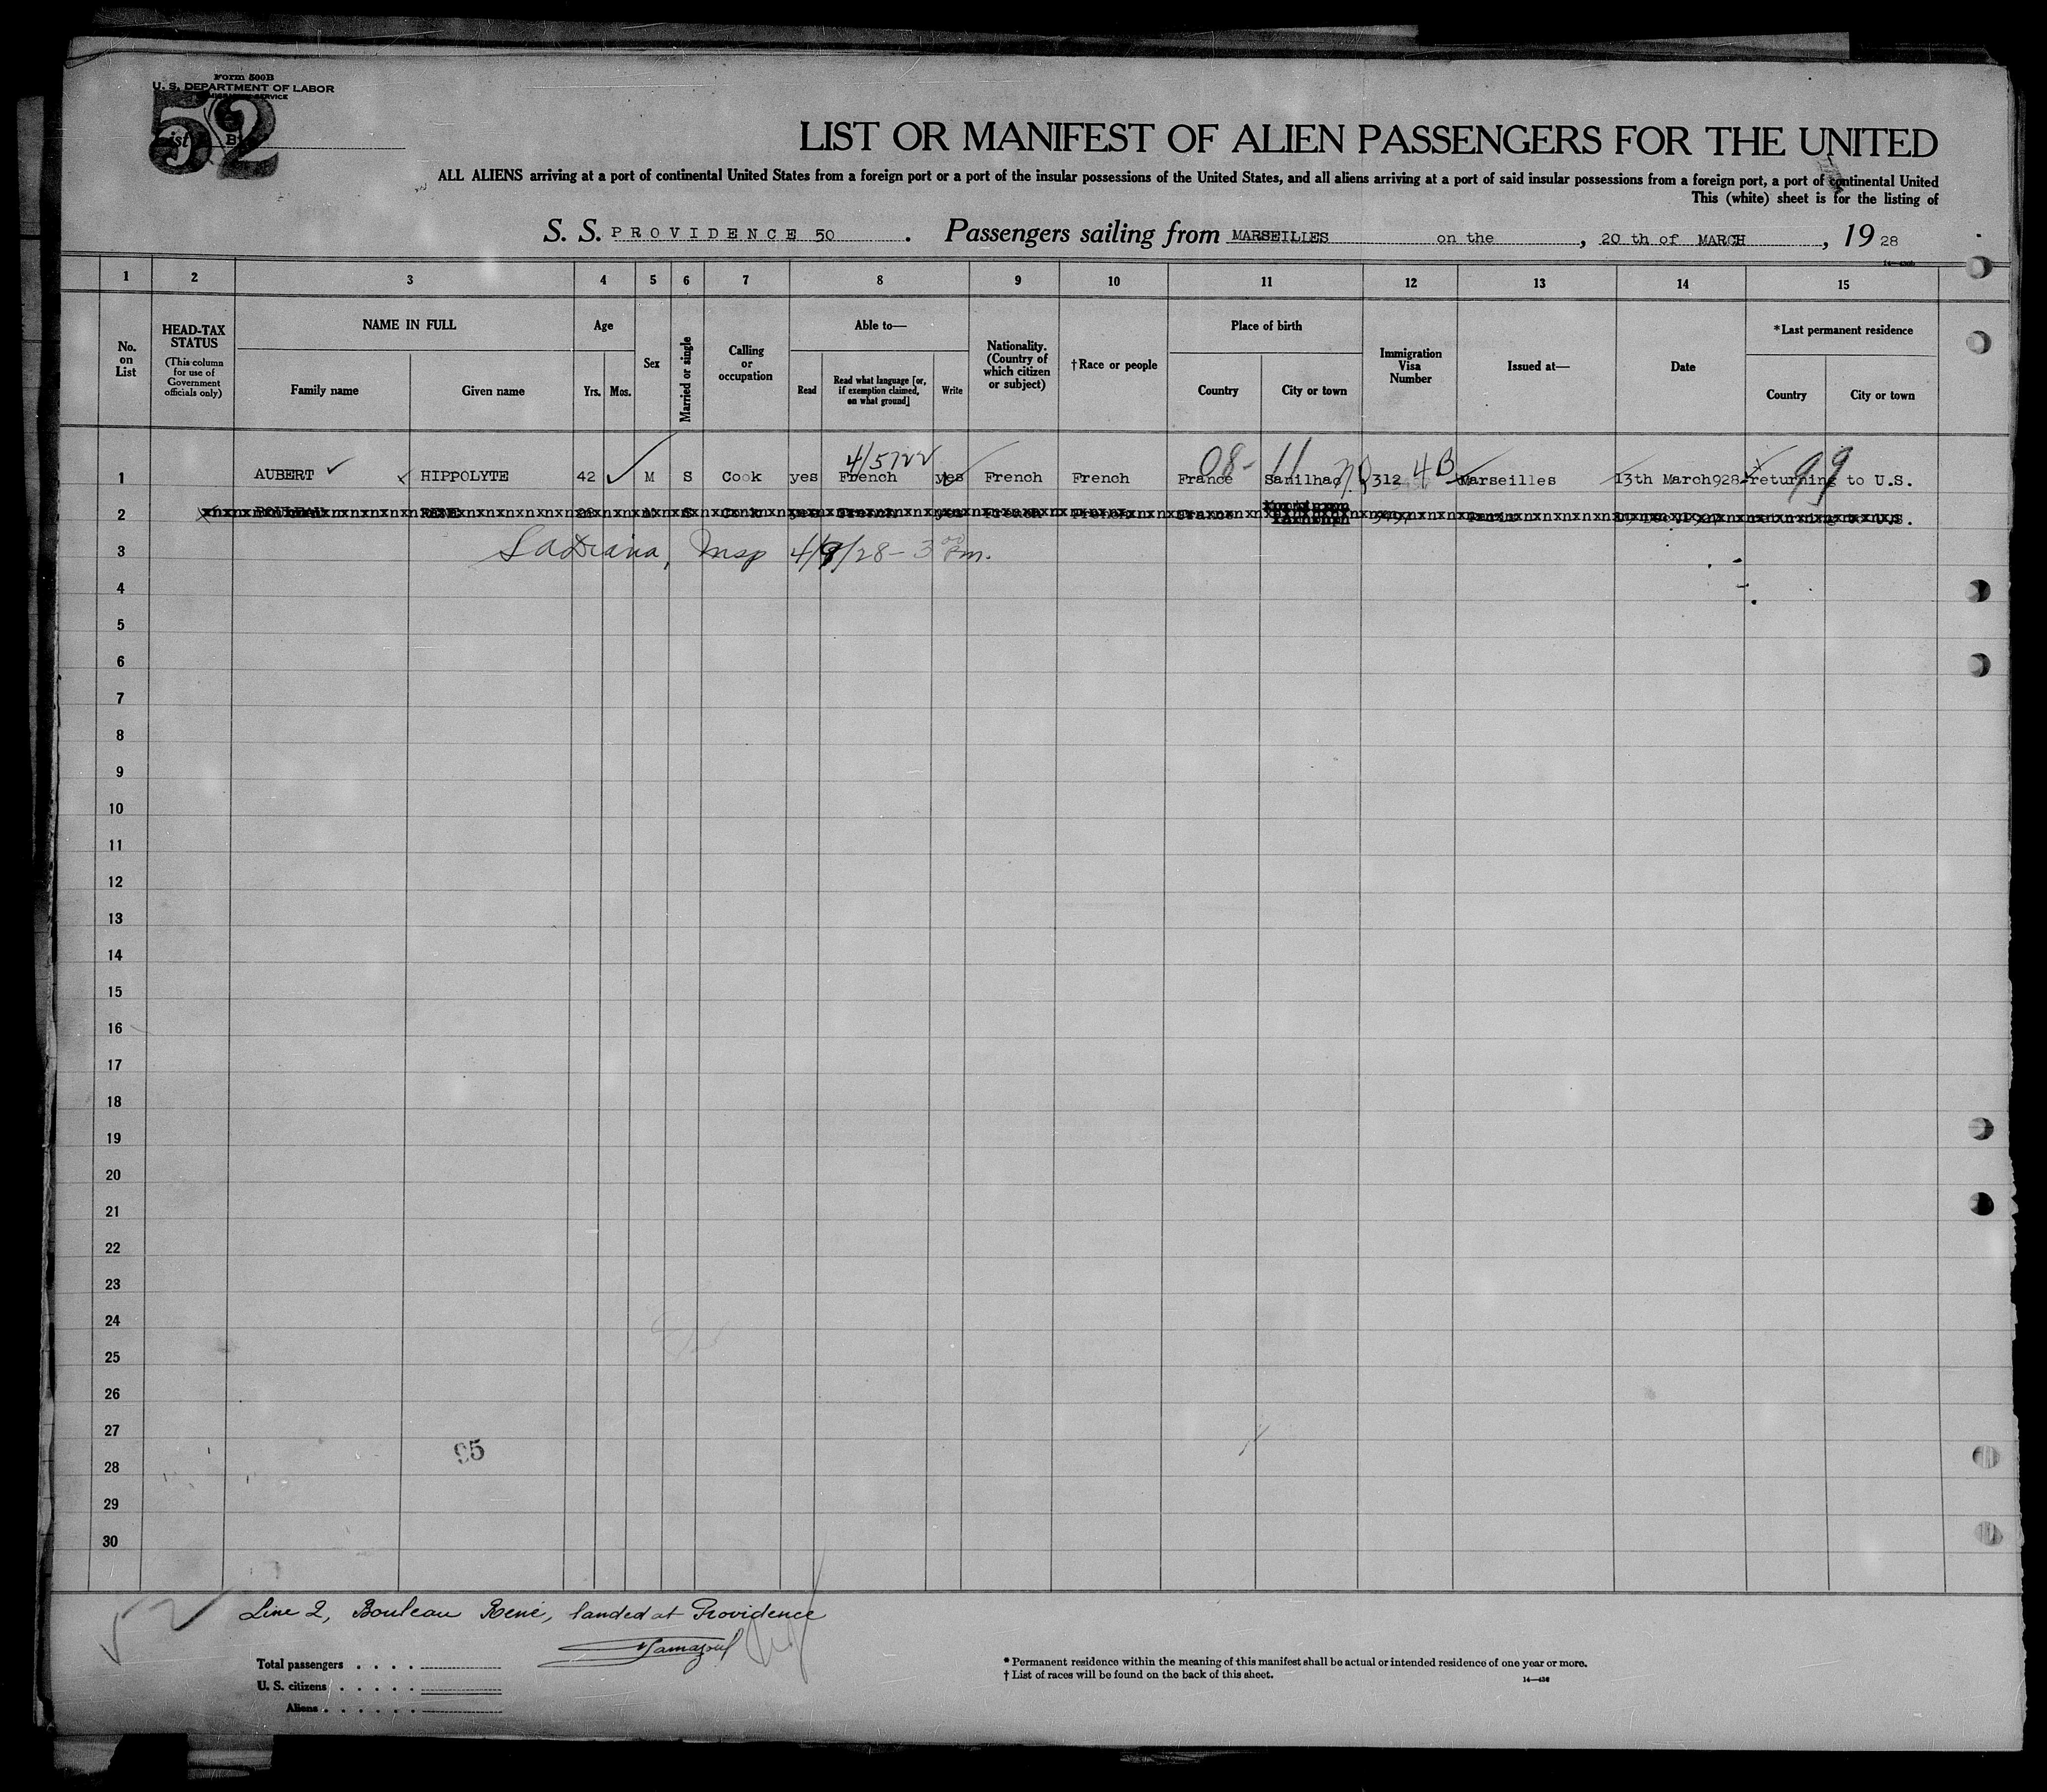 Form 500B
U. S. DEPARTMENT OF LABOR
SERVICE
52
List
LIST OR MANIFEST OF ALIEN PASSENGERS FOR THE UNITED
ALL ALIENS arriving at a port of continental United States from a foreign port or a port of the insular possessions of the United States, and all aliens arriving at a port of said insular possessions from a foreign port, a port of continental United
This (white) sheet is for the listing of
S. S. PROVIDENCE 50 . Passengers sailing from MARSEILLES on the , 20 th of MARCH , 19 28
1 2 3 4 5 6 7 8 9 10 11 12 13 14 15
No. on List
HEAD-TAX STATUS
(This column for use of Government officials only)
NAME IN FULL
Family name
Given name
Age
Yrs. Mos.
Sex
Married or single
Calling or occupation
Able to—
Read
Read what language [or, if exemption claimed, on what ground]
Write
Nationality. (Country of which citizen or subject)
†Race or people
Place of birth
Country
City or town
Immigration Visa Number
Issued at—
Date
*Last permanent residence
Country
City or town
4/5722 08- 11 99
1 AUBERT HIPPOLYTE 42 M S Cook yes French yes French French France Sanilhac 312 4B Marseilles 13th March928 returning to U.S.
2 BOULEAU RENE M S Cook yes French yes French French France
3 4/9/28 - 3 00 Pm.
4
5
6
7
8
9
10
11
12
13
14
15
16
17
18
19
20
21
22
23
24
25
26
27
28
29
30
95
Line 2, Bouleau René, landed at Providence
Total passengers . . . .
U. S. citizens . . . . .
Aliens . . . . . .
* Permanent residence within the meaning of this manifest shall be actual or intended residence of one year or more.
† List of races will be found on the back of this sheet.